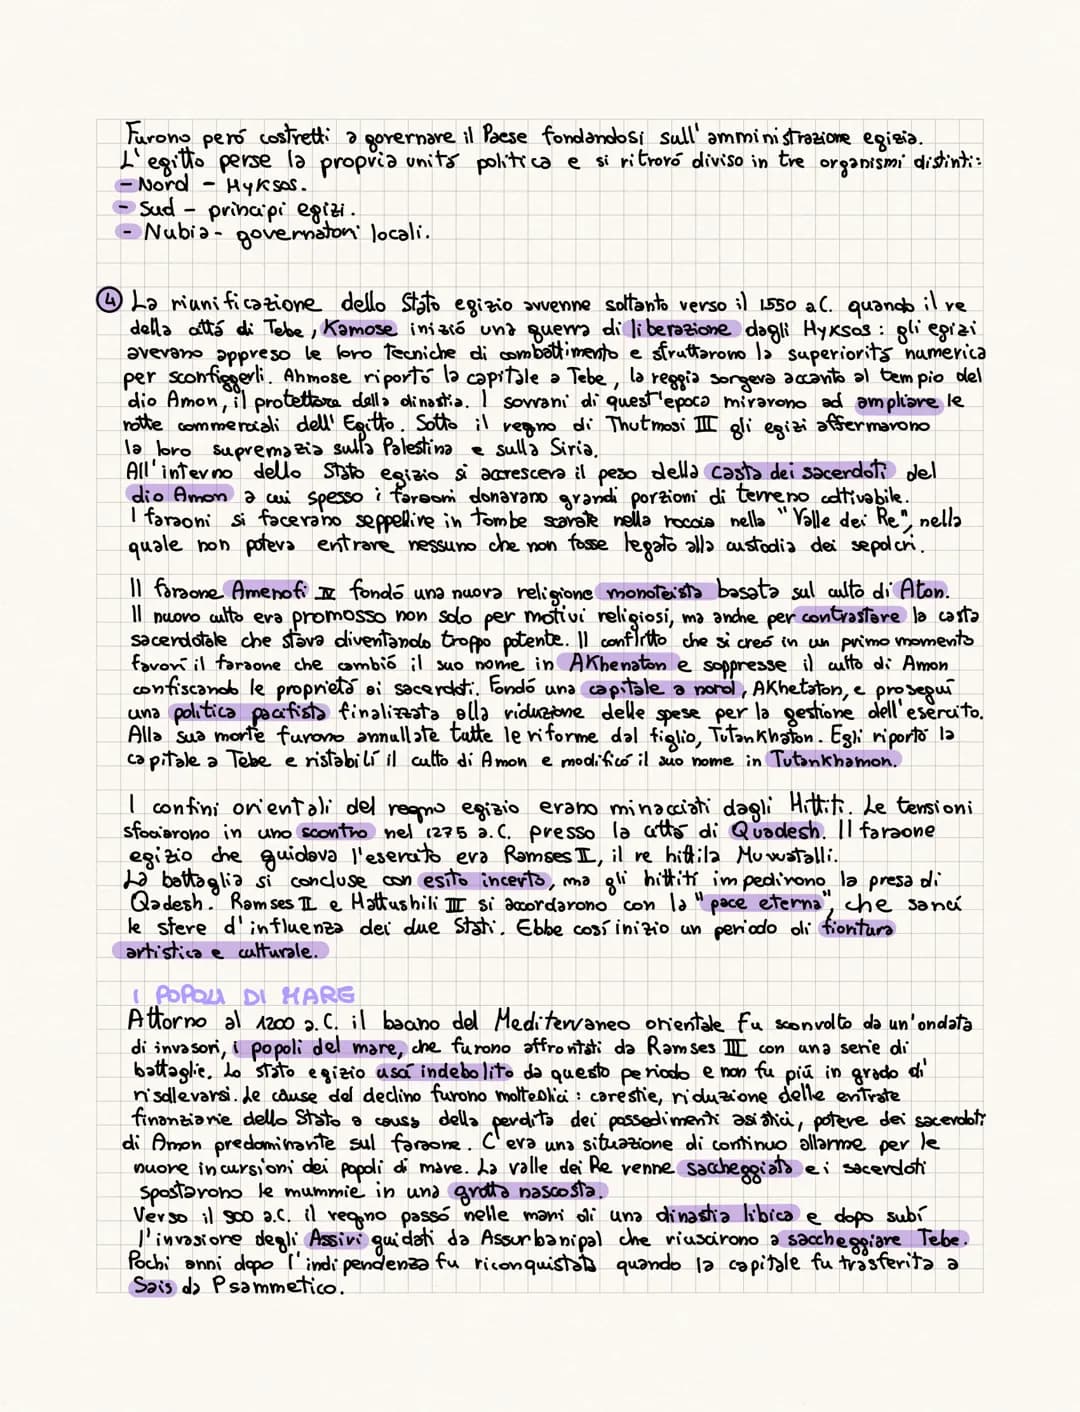 Furono peró costretti a governare il Paese fondandosi sull'amministrazione egizia.
L'egitto perse la propria unitá politica e si ritrovó diviso in tre organismi distinti:
- Nord - Hyksos.
- Sud - principi egizi.
- Nubia - governatori locali.
4 La riunificazione dello Stato egizio avvenne soltanto verso il 1550 a.C. quando il re
della cittá di Tebe, Kamose inizió una guerra di liberazione dagli Hyksos: gli egizi
avevano appreso le loro tecniche di combattimento e sfruttarono la superioritá numerica
per sconfiggerli. Ahmose riportó la capitale a Tebe, la reggia sorgeva accanto al tempio del
dio Amon, il protettore della dinastia. I sovrani di quest'epoca miravano ad ampliare le
rotte commerciali dell'Egitto. Sotto il regno di Thutmosi III gli egizi affermarono
la loro supremazia sulla Palestina e sulla Siria.
All'interno dello Stato egizio si accresceva il peso della casta dei sacerdoti del
dio Amon a cui spesso i faraoni donavano grandi porzioni di terreno coltivabile.
I faraoni si facevano seppellire in tombe scavate nella roccia nella "Valle dei Re", nella
quale non poteva entrare nessuno che non fosse legato alla custodia dei sepolcri.
Il faraone Amenofi IV fondó una nuova religione monoteista basata sul culto di Aton.
Il nuovo culto era promosso non solo per motivi religiosi, ma anche per contrastare la casta
sacerdotale che stava diventando troppo potente. Il conflitto che si creó in un primo momento
favorí il faraone che cambió il suo nome in Akhenaton e soppresse il culto di Amon
confiscando le proprietá ai sacerdoti. Fondó una capitale a nord, Akhetaton, e proseguí
una politica pacifista finalizzata alla riduzione delle spese per la gestione dell'esercito.
Alla sua morte furono annullate tutte le riforme dal figlio, Tutankhaton. Egli riportó la
capitale a Tebe e ristabilí il culto di Amon e modificó il suo nome in Tutankhamon.
I confini orientali del regno egizio erano minacciati dagli Hittiti. Le tensioni
sfociarono in uno scontro nel 1275 a.C. presso la cittá di Quadesh. Il faraone
egizio che guidava l'esercito era Ramses II, il re hittila Muwatalli.
La battaglia si concluse con esito incerto, ma gli hittiti impedirono la presa di
Qadesh. Ramses II e Hattushili III si accordarono con la "pace eterna", che sancí
le sfere d'influenza dei due Stati. Ebbe cosí inizio un periodo di fioritura
artistica e culturale.
I POPOLI DI MARE
Attorno al 1200 a.C. il bacino del Mediterraneo orientale fu sconvolto da un'ondata
di invasori, i popoli del mare, che furono affrontati da Ramses III con una serie di
battaglie. Lo stato egizio uscí indebolito da questo periodo e non fu piú in grado di
risollevarsi. Le cause del declino furono molteplici: carestie, riduzione delle entrate
finanziarie dello Stato a causa della perdita dei possedimenti asiatici, potere dei sacerdoti
di Amon predominante sul faraone. C'era una situazione di continuo allarme per le
nuove incursioni dei popoli di mare. La valle dei Re venne saccheggiata e i sacerdoti
spostarono le mummie in una grotta nascosta.
Verso il 900 a.C. il regno passó nelle mani di una dinastia libica e dopo subí
l'invasione degli Assiri guidati da Assurbanipal che riuscirono a saccheggiare Tebe.
Pochi anni dopo l'indipendenza fu riconquistata quando la capitale fu trasferita a
Sais da Psammetico.